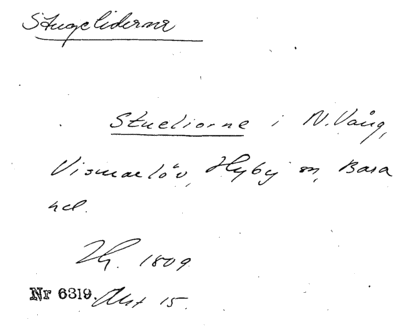 Stugeliderne
Stueliorne i N. Vång,
Vismarlöv, Hyby sn, Bara
hd.
1809
Nr 6319. Akt 15.